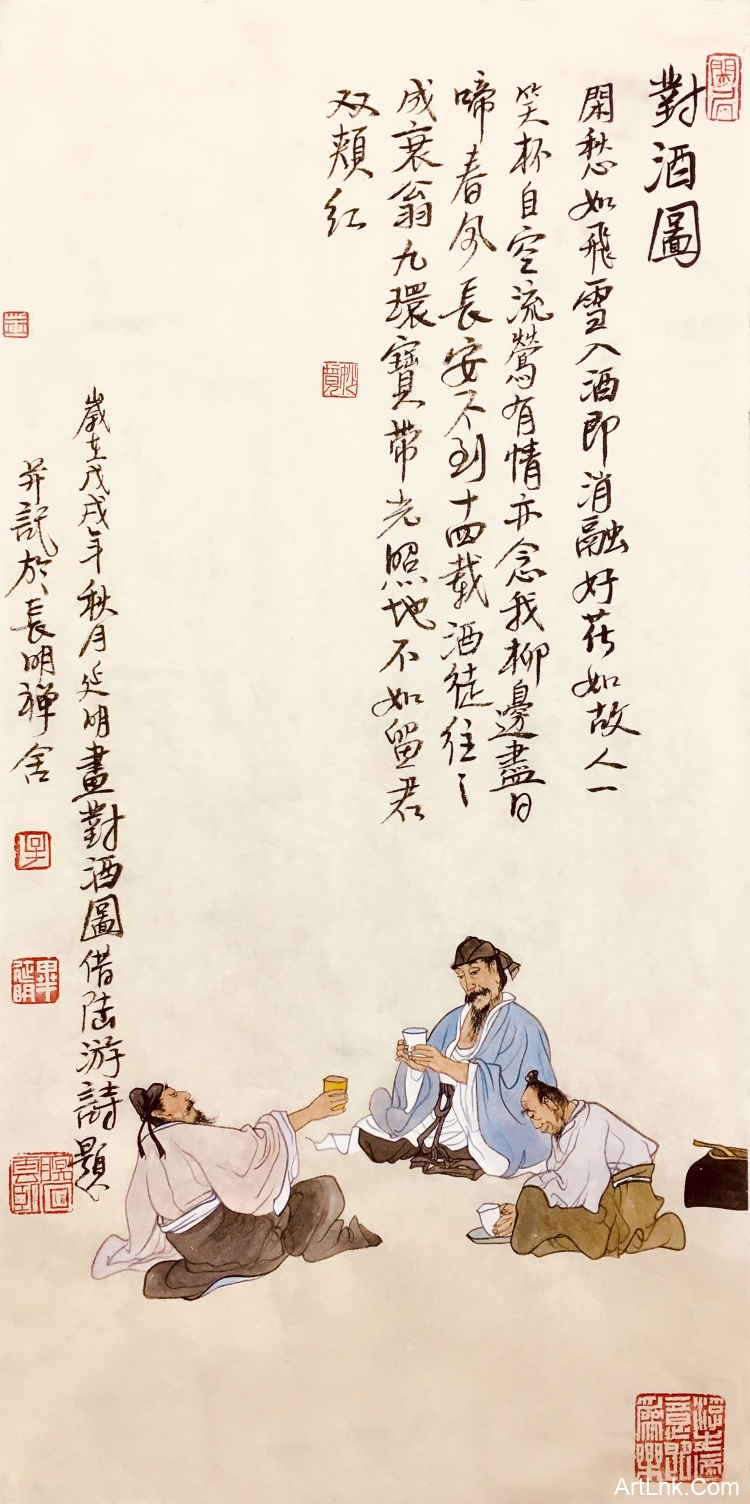 對酒圖
閑愁如飛雪入酒即消融好花如故人一
笑杯自空流鶯有情亦念我柳邊盡日
啼春風長安不到十四載酒徒往々
成衰翁九環寶帶光照地不如留君
双頰紅
歲在戊戌年秋月延明畫對酒圖借陆游詩題
并記於長明禅舍
ArtLnk.Com